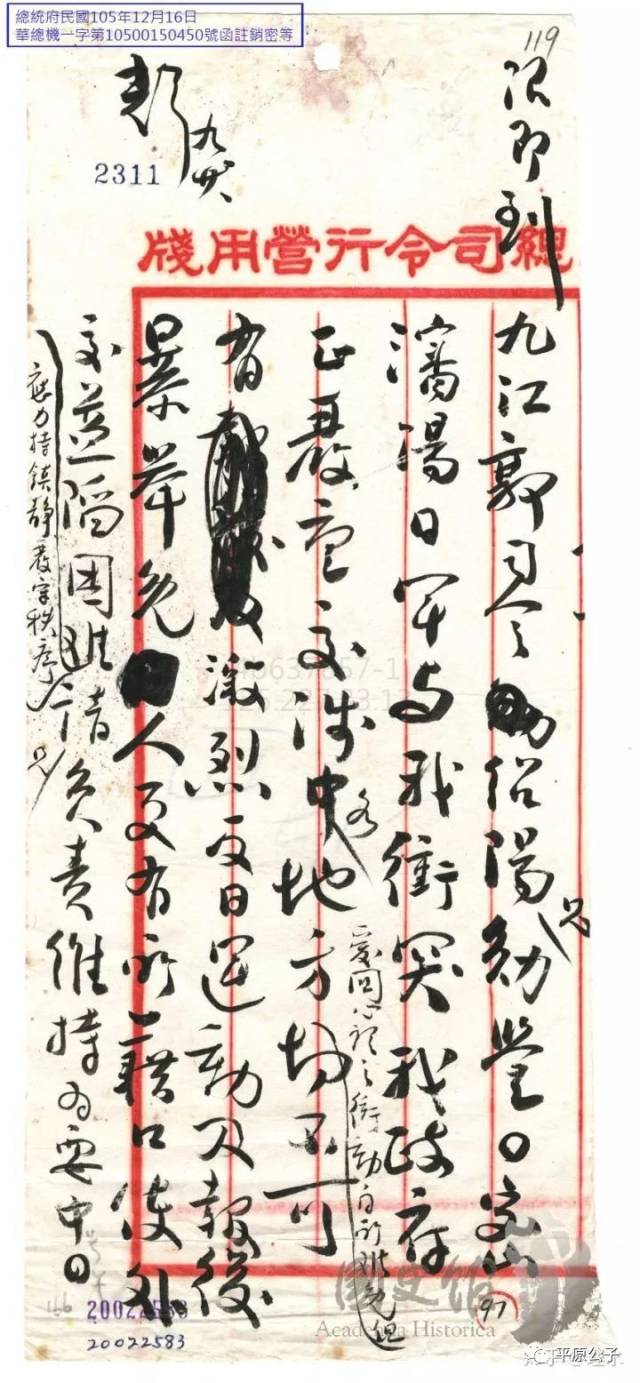 總統府民國105年12月16日
華總機一字第10500150450號函註銷密等
119
限即到
彭
2311
總司令行營用牋
九江郭司令 兄勛鑒〇密
瀋陽日軍與我衝突我政府
正嚴重交涉中各地方切不可
愛國心理之衝動自所難免但
有激烈反日運動及報復
暴舉免人更有所藉口使外
交益陷困難請兄負責維持為要中〇
應力持鎮靜嚴守秩序
97
116
20022583
20022583
國史館
Academia Historica
平原公子